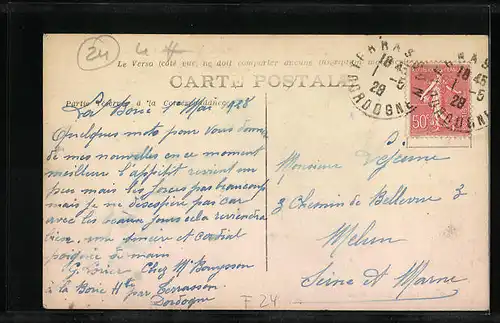 24
Le Verso (côté vue) ne doit comporter aucune inscription
CARTE POSTALE
Partie réservée à la Correspondance
TERRASSON
18 45
1 - 5
28
DORDOGNE
50c
TERRASSON
18 45
1 - 5
28
DORDOGNE
La Borie 1 Mai 1928
Quelques mots pour vous donner
de mes nouvelles en ce moment
meilleure l'appétit revient un
peu mais les forces pas beaucoup
mais je ne désespère pas car
avec les beaux jours cela reviendra
bien. une sincère et cordial
poignée de main
Chez Mr Bouysson
à la Borie Hte par Terrasson
Dordogne
Monsieur Dejeune
3 Chemin de Bellevue 3
Melun
Seine et Marne
F 24